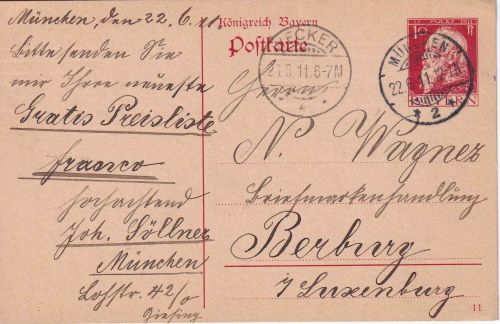 München, den 22.6.11
Bitte senden Sie
mir Ihre neueste
Gratis Preisliste
franco
hochachtend
Joh. Söllner
München
Lohstr. 42/0
Giesing
Königreich Bayern
Postkarte
BECKER
6-7N
MÜNCHEN
22.6.11
* 2 *
10
BAYERN
Herrn
N. Wagner
Briefmarkenhandlung
Berburg
i/Luxenburg
11